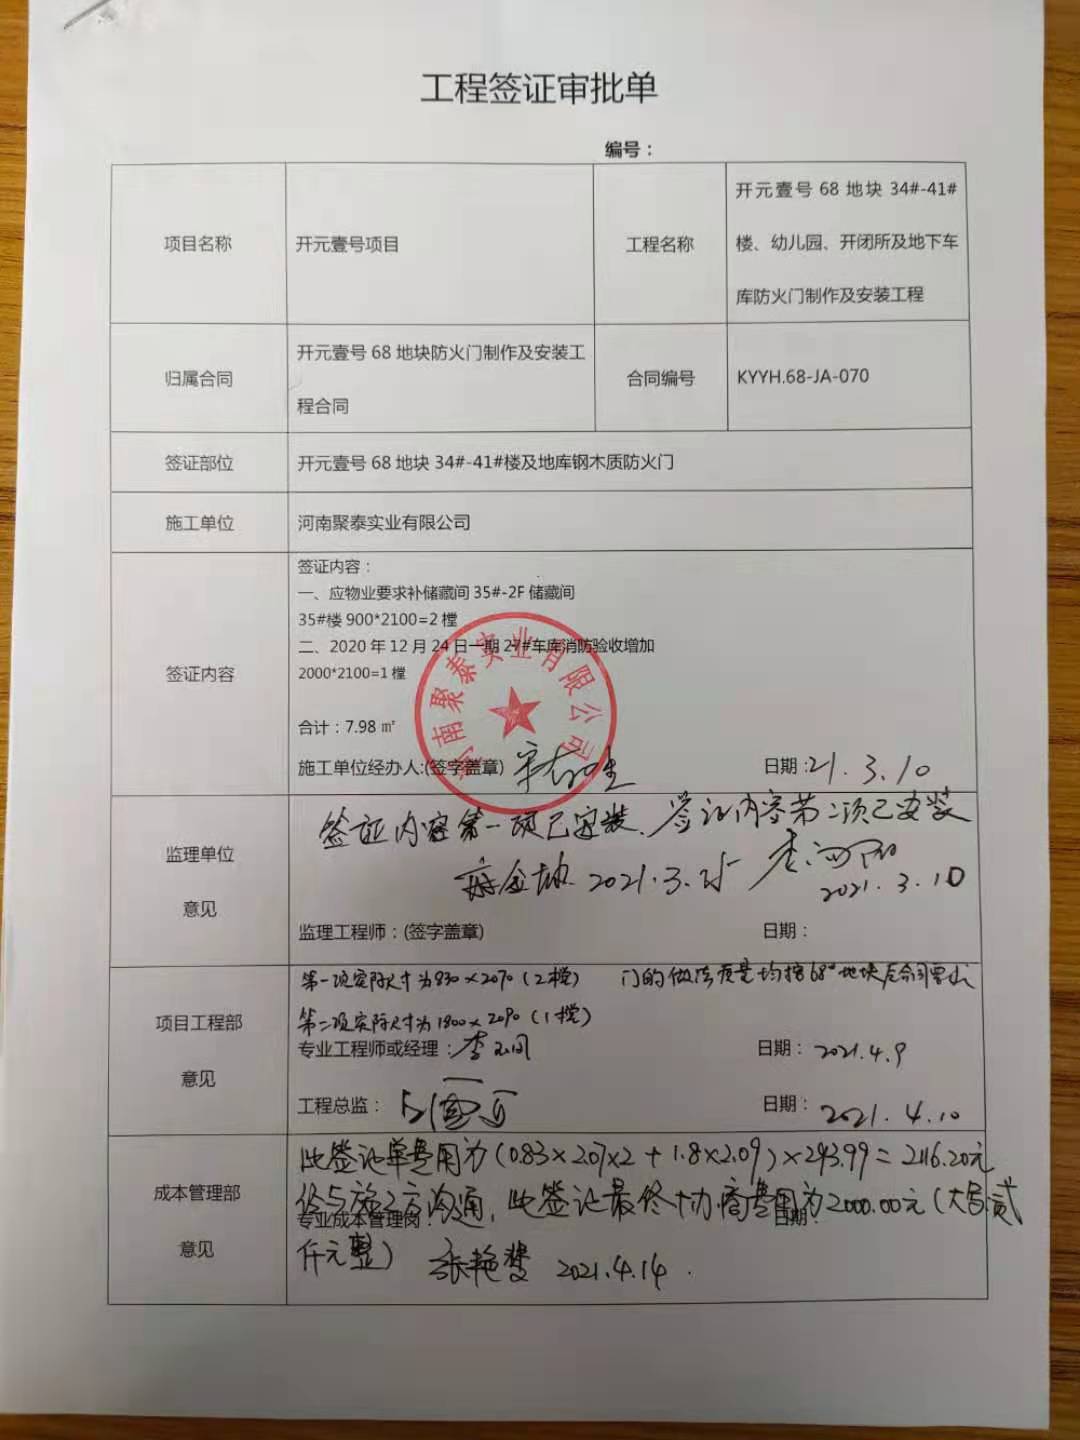 工程签证审批单
编号：
项目名称
开元壹号项目
工程名称
开元壹号 68 地块 34#-41#
楼、幼儿园、开闭所及地下车
库防火门制作及安装工程
归属合同
开元壹号 68 地块防火门制作及安装工
程合同
合同编号
KYYH.68-JA-070
签证部位
开元壹号 68 地块 34#-41#楼及地库钢木质防火门
施工单位
河南聚泰实业有限公司
签证内容
签证内容：
一、应物业要求补储藏间 35#-2F 储藏间
35#楼 900*2100=2 樘
二、2020 年 12 月 24 日一期 27#车库消防验收增加
2000*2100=1 樘
合计：7.98 ㎡
河南聚泰实业有限公司
施工单位经办人:(签字盖章)
日期：21.3.10
监理单位
意见
签证内容第一项已安装、签证内容第二项已安装
2021.3.
2021.3.10
监理工程师：(签字盖章)
日期：
项目工程部
意见
第一项实际尺寸为830×2070（2樘） 门的做法质量均按68#地块合同要求
第二项实际尺寸为1800×2090（1樘）
专业工程师或经理：李
日期： 2021.4.9
工程总监：
日期： 2021.4.10
成本管理部
意见
此签证单费用为(0.83×2.07×2+1.8×2.09)×293.99=2116.20元
经与施工方沟通，此签证最终协商费用为2000.00元（大写：贰
专业成本管理岗：
日期：
仟元整） 张艳 2021.4.14.